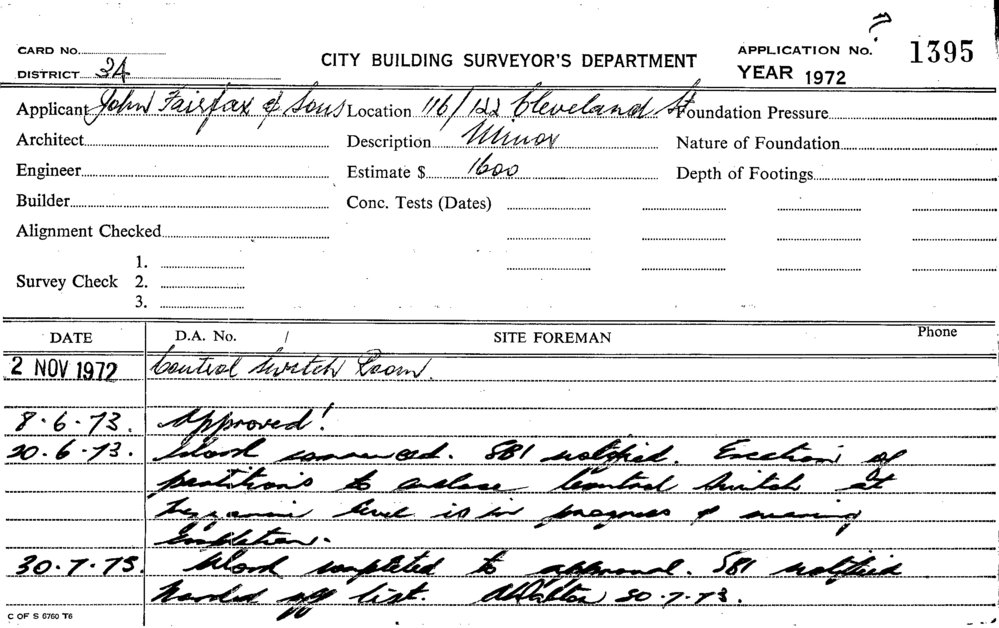 CARD No.
DISTRICT 3A
CITY BUILDING SURVEYOR'S DEPARTMENT
APPLICATION No. 1395
YEAR 1972
Applicant John Fairfax & Sons Location 116/122 Cleveland St Foundation Pressure
Architect Description Minor Nature of Foundation
Engineer Estimate $ 1600 Depth of Footings
Builder Conc. Tests (Dates)
Alignment Checked
1.
Survey Check 2.
3.
DATE D.A. No. / SITE FOREMAN Phone
2 NOV 1972 Control Switch Room.
8.6.73. Approved!
20.6.73. Work commenced. SBI notified. Erection of
partitions to enclose Control Switch at
mezzanine level is in progress & nearing
completion.
30.7.73. Work completed to approval. SBI notified
Marked off list. 30.7.73.
C OF S 6760 T6